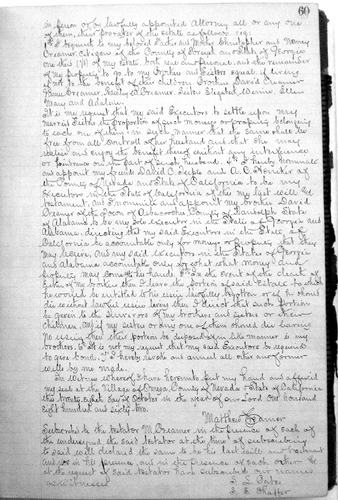 60
in person or by lawfully appointed Attorney all or any one
of them, their probate of the estate as follows viz:
1st I bequest to my beloved Father and Mother Christopher and Nancy
Creamer, citizens of the County of and State of Georgia
one third (1/3) of my Estate, both real and personal and the remainder
of my property to go to my Brothers and Sisters equal if living
if not to the benefit of the children Brother David Creamer
Creamer, Bailey W Creamer, Sister Elizabeth, Winnie, Ellen
Mary and Adaline.
It is my request that my said Executors to settle upon my
married Sisters the proportion of such money or property belonging
to each one of them in such manner that the same shall be
free from all Controll of her husband and that she may
receive and enjoy the benefit thereof without any interference
or hindrance on the part of such husband. 4th I hereby nominate
and appoint my friends David C and A. C. of
the County of Nevada and State of California to be my
Executors in the State of California of this my last will and
testament, and I nominate and appoint my brother David
Creamer of the Town of County of Randolph State
of Alabama to be my sole Executor in the States of Georgia and
Alabama, directing that my said Executors in the State of
California be accountable only for money or property that they
may receive, and my said Executor in the States of Georgia
and Alabama accountable only for what money and
property may come to his hands. 5th In the event of the death of
either of my brothers then I leave the portion of said Estate to which
he would be entitled to his issue lawfully begotten or if he should
die without lawful issue living then I desire that such portion
be given to the survivors of my brothers and sisters or their
children. And if my sisters or any one of them should die leaving
no issue then their portion be disposed of in like manner as my
brothers. 6th It is not my request that my said Executors be required
to give bond. 7th I hereby revoke and annul all other and former
wills by me made.
In Witness Whereof, I have hereunto set my hand and affixed
my seal at the Village of Omega County of Nevada State of California
this twenty eighth day of October in the year of our Lord One thousand
eight hundred and sixty two.
Mathew Creamer
Subscribed by the testator M. Creamer in the presence of each of
the undersigned the said testator at the time of subscribing
to said will declared the same to be his last will and testament
and we in his presence and in the presence of each other &
at the request of said testator have subscribed our names
as witnesses